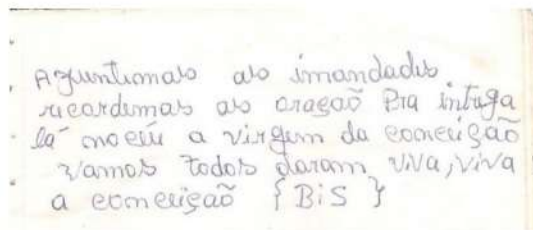 Ajuntimals als imandadis
ricordemas as oragaõ Pra intriga
lá no ceu a virgem da conceigão
vamos todos daram viva, viva
a conceigaõ { BiS }